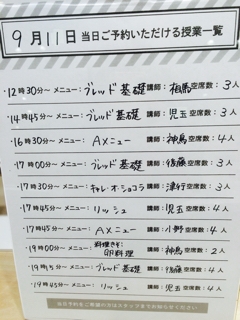 9月11日 当日ご予約いただける授業一覧
・12時30分～ メニュー：ブレッド基礎 講師：相馬 空席数：3人
・14時45分～ メニュー：ブレッド基礎 講師：児玉 空席数：3人
・16時30分～ メニュー：Aメニュー 講師：神鳥 空席数：4人
・17時00分～ メニュー：ブレッド基礎 講師：後藤 空席数：3人
・17時30分～ メニュー：キャレ・オ・ショコラ 講師：津野 空席数：3人
・17時45分～ メニュー：リッシュ 講師：児玉 空席数：4人
・17時45分～ メニュー：Aメニュー 講師：小野 空席数：4人
・19時00分～ メニュー：卵料理 講師：神鳥 空席数：2人
・19時15分～ メニュー：ブレッド基礎 講師：後藤 空席数：4人
・19時45分～ メニュー：リッシュ 講師：児玉 空席数：4人
当日予約をご希望の方はスタッフまでお知らせください。